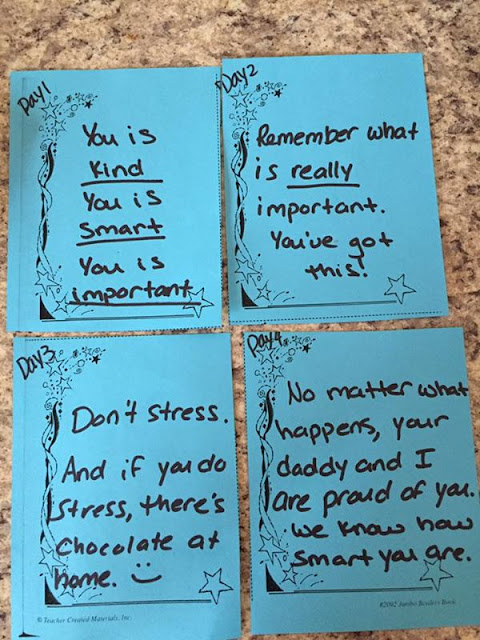 Day1
You is
Kind
You is
Smart
You is
important
Day2
Remember what
is really
important.
You've got
this!
Day3
Don't stress.
And if you do
stress, there's
chocolate at
home.
© Teacher Created Materials, Inc.
Day4
No matter what
happens, your
daddy and I
are proud of you.
We know how
smart you are.
#2092 Jumbo Borders Book